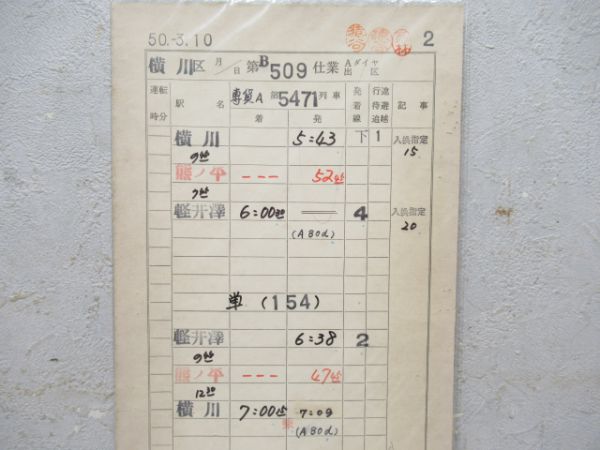 50.-3.10 2
横川区 月/日 第B509仕業 Aダイヤ 出/区
運転時分 駅名 専貨A 第5471列車 着 発 発着線 行違待避追越 記事
横川 5:43 下1 入換指定 15
熊ノ平 --- 52
軽井澤 6:00 4 入換指定 20
(A80d)
単(154)
軽井澤 6:38 2
熊ノ平 --- 47
横川 7:00 7:09
(A80d)